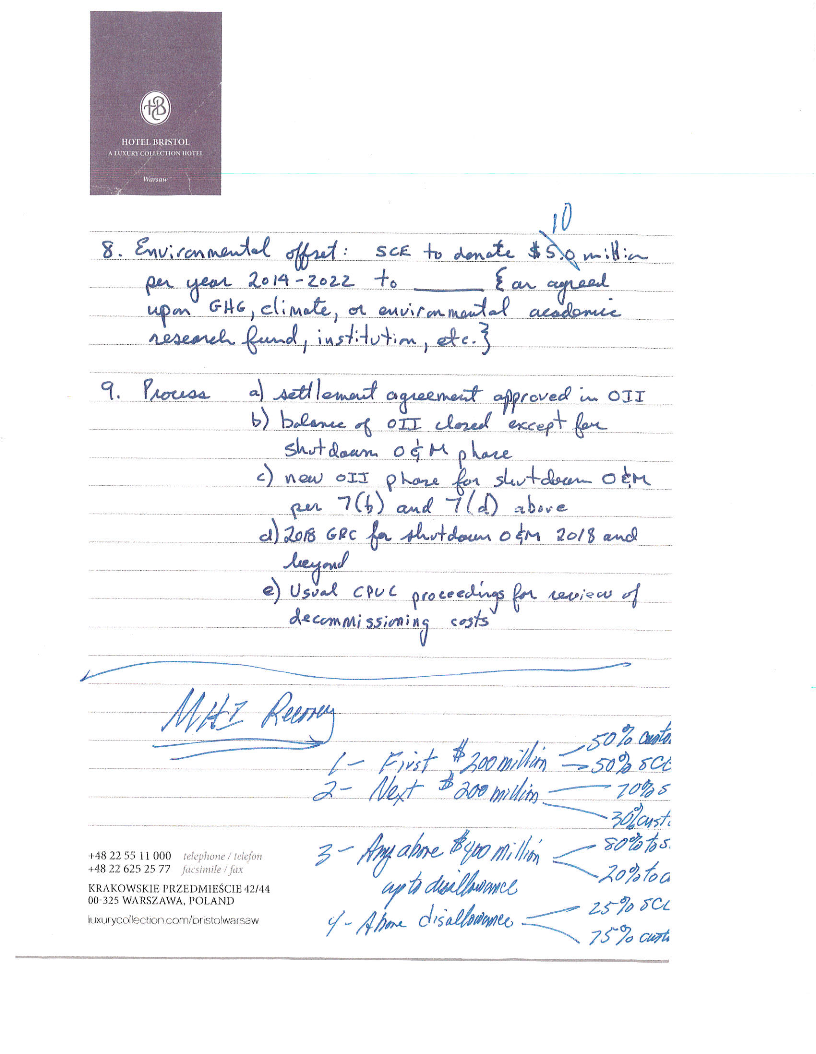 HCB
HOTEL BRISTOL
A LUXURY COLLECTION HOTEL
Warsaw
10
8. Environmental offset: SCE to donate $5.0 million
per year 2014-2022 to ______ {an agreed
upon GHG, climate, or environmental academic
research fund, institution, etc.}
9. Process a) settlement agreement approved in OII
b) balance of OII closed except for
shutdown O&M phase
c) new OII phase for shutdown O&M
per 7(b) and 7(d) above
d) 2018 GRC for shutdown O&M 2018 and
beyond
e) Usual CPUC proceedings for review of
decommissioning costs
MHI Recovery
1- First $200 million 50% custo
50% SCE
2- Next $200 million 70% S
30% cust.
3- Any above $400 million 80% to S.
up to disallowance 20% to c
4- Above disallowance 25% SCE
75% custo
+48 22 55 11 000 telephone / telefon
+48 22 625 25 77 facsimile / fax
KRAKOWSKIE PRZEDMIEŚCIE 42/44
00-325 WARSZAWA, POLAND
luxurycollection.com/bristolwarsaw